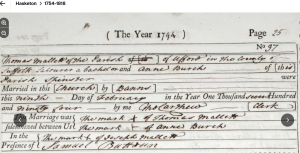 Hasketon > 1754-1818
( The Year 1794 ) Page 25
No 97
Thomas Mellett of the Parish of Ufford in the County of
Suffolk a batchelor and Anne Burch of this
Parish Spinster were
Married in this Church by Banns
this Ninth Day of February in the Year One Thousand seven Hundred
and Ninety four by me Clerk
Marriage was The mark X of Thomas Mellett
solemnized between Us The mark X of Anne Burch
In the The mark X of Joseph Mellett
Presence of Samuel